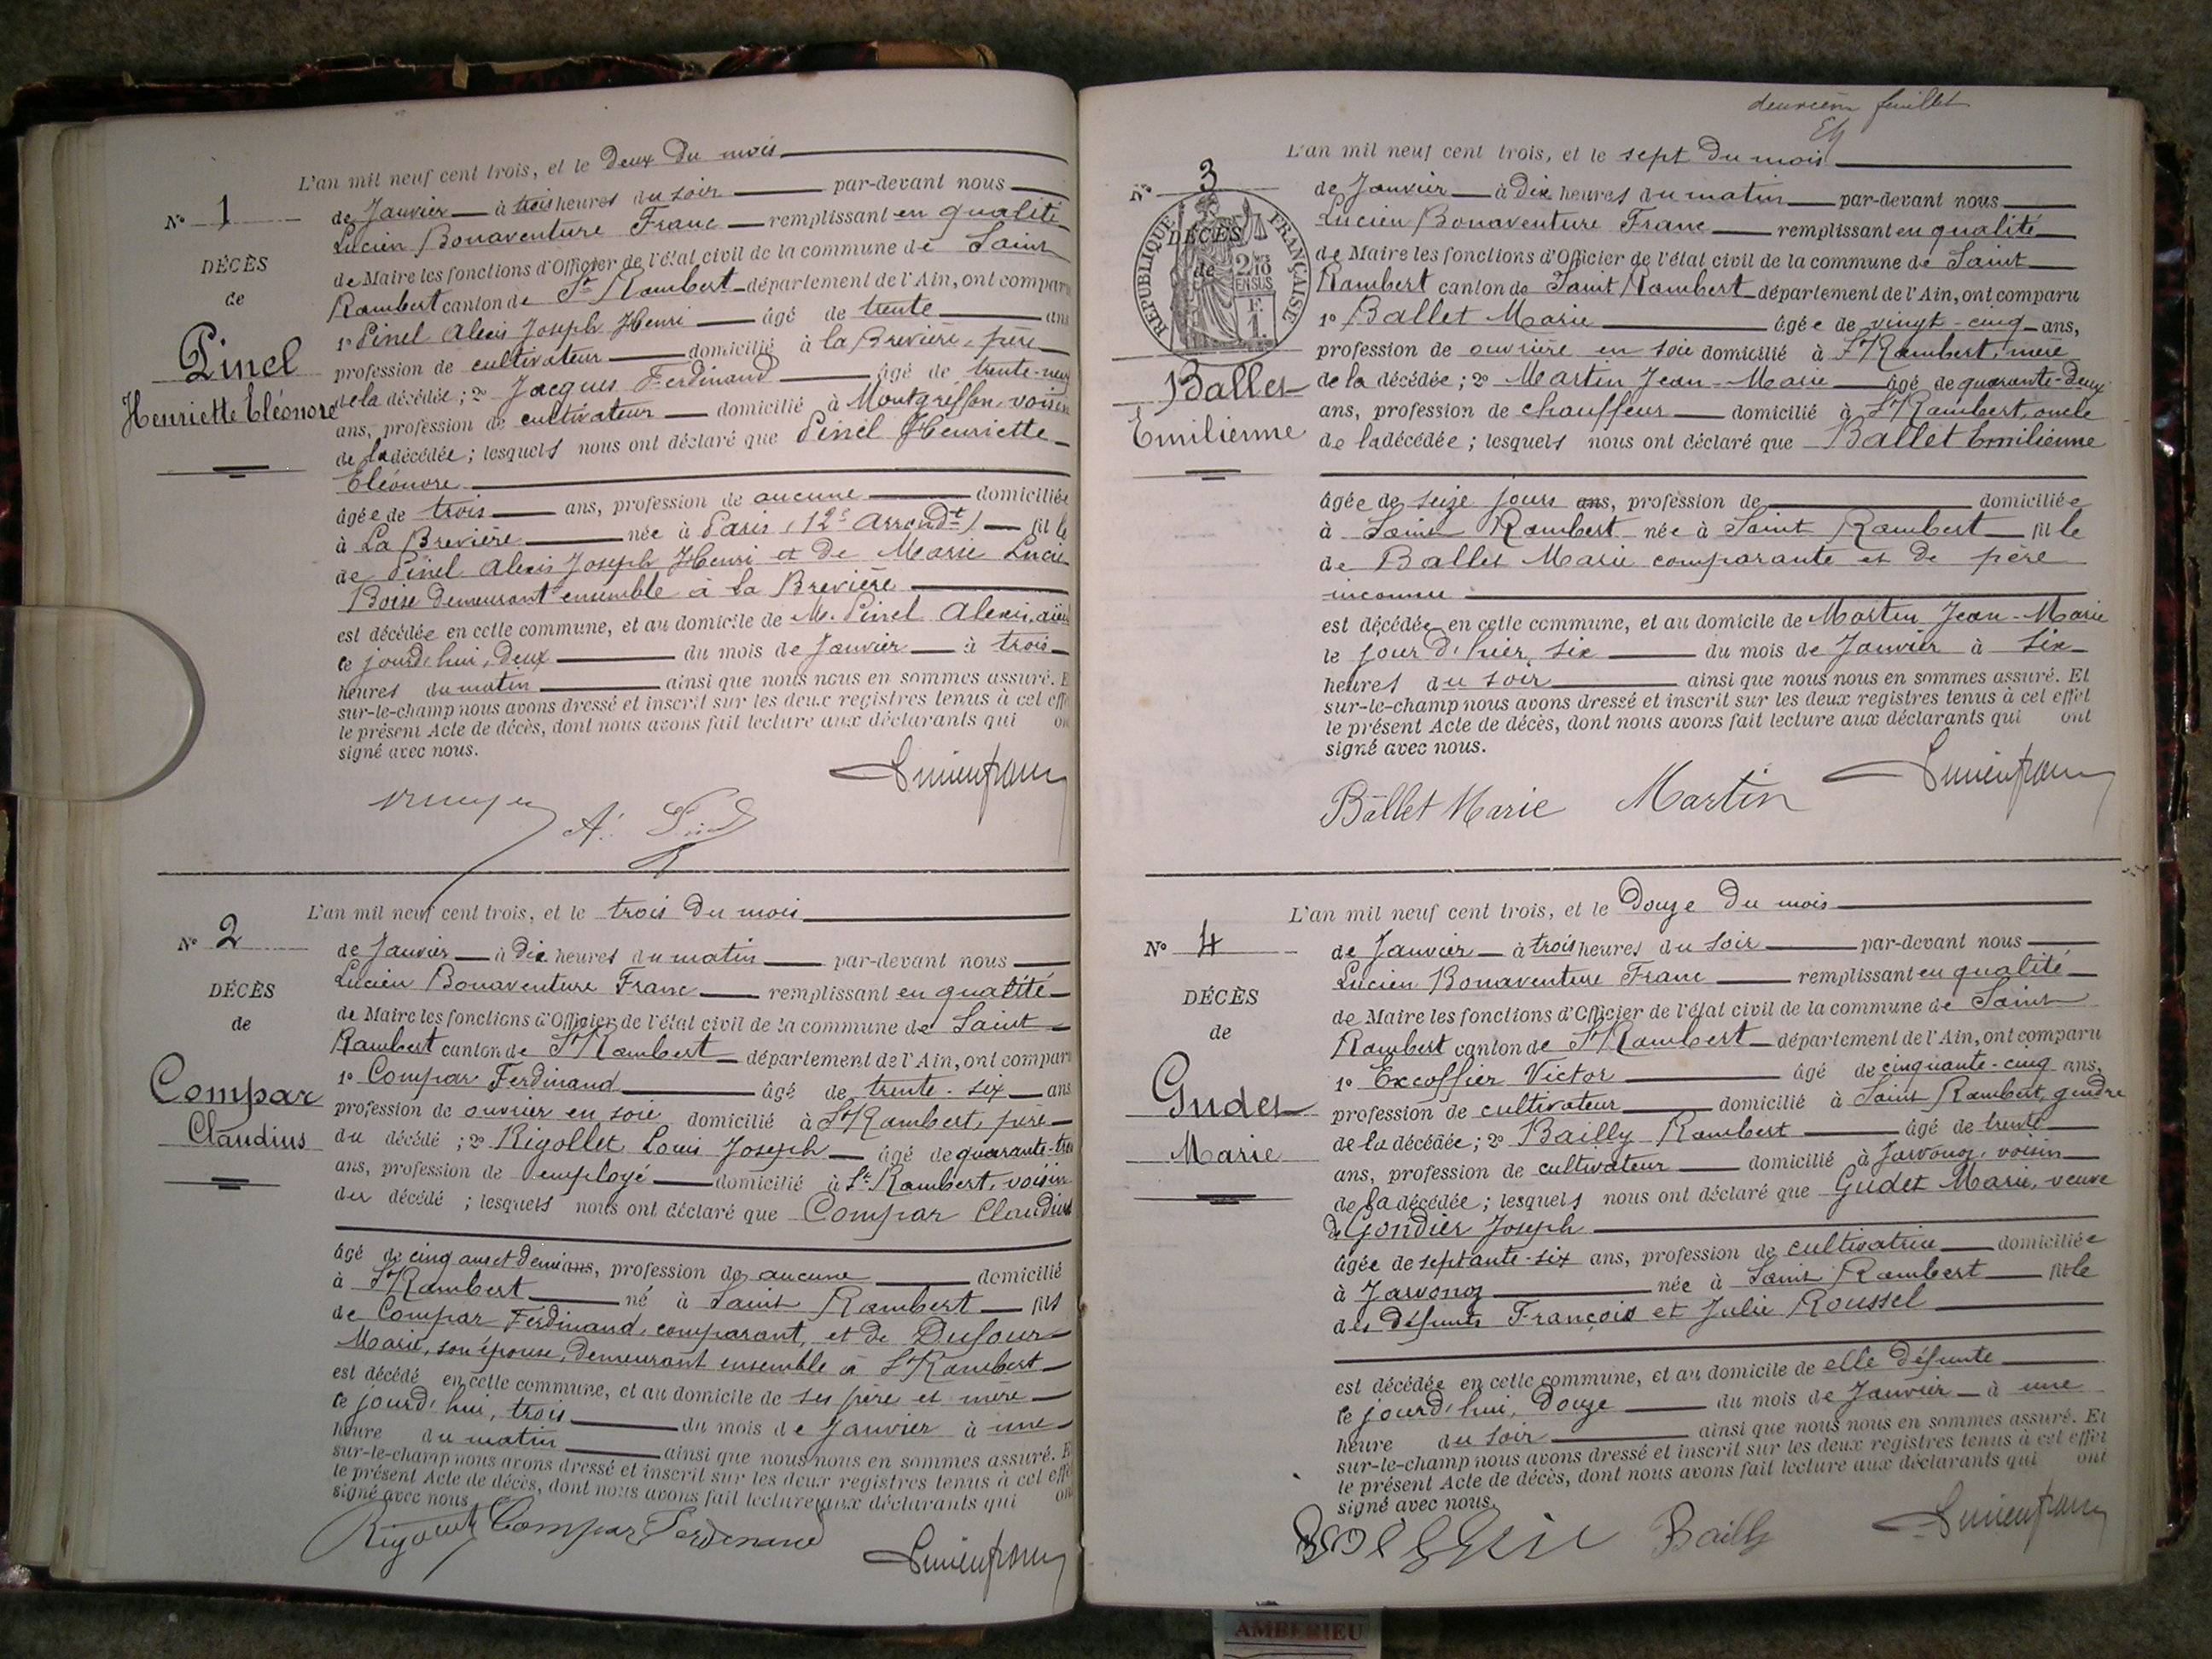 L'an mil neuf cent trois, et le Deux Du mois
N° 1
de Janvier à trois heures du soir par-devant nous
Lucien Bonaventure Franc remplissant en qualité
DÉCÈS
de Maire les fonctions d'Officier de l'état civil de la commune de Saint
de
Rambert canton de St Rambert département de l'Ain, ont comparu
1° Pinel Alexis Joseph Henri âgé de trente ans
Pinel
profession de cultivateur domicilié à la Brevière, père
Henriette Eléonore
de la décédée; 2° Jacques Ferdinand âgé de trente-neuf
ans, profession de cultivateur domicilié à Montgriffon, voisin
de la décédée; lesquels nous ont déclaré que Pinel Henriette
Eléonore
âgée de trois ans, profession de aucune domiciliée
à La Brevière née à Paris (12e Arrondt) fille
de Pinel Alexis Joseph Henri et de Marie Lucie
Boise demeurant ensemble à la Brevière
est décédée en cette commune, et au domicile de M. Pinel Alexis, aïeul
ce jourd'hui, deux du mois de Janvier à trois
heures du matin ainsi que nous nous en sommes assuré. Et
sur-le-champ nous avons dressé et inscrit sur les deux registres tenus à cet effet
le présent Acte de décès, dont nous avons fait lecture aux déclarants qui ont
signé avec nous.
Lucien Franc
A. Pinel
L'an mil neuf cent trois, et le trois Du mois
N° 2
de Janvier à Dix heures du matin par-devant nous
Lucien Bonaventure Franc remplissant en qualité
DÉCÈS
de Maire les fonctions d'Officier de l'état civil de la commune de Saint
de
Rambert canton de St Rambert département de l'Ain, ont comparu
1° Compar Ferdinand âgé de trente-six ans
Compar
profession de ouvrier en soie domicilié à St Rambert, père
Claudius
du décédé; 2° Rigollet Louis Joseph âgé de quarante-trois
ans, profession de employé domicilié à St Rambert, voisin
du décédé; lesquels nous ont déclaré que Compar Claudius
âgé de cinq ans et demi ans, profession de aucune domicilié
à St Rambert né à Saint Rambert fils
de Compar Ferdinand, comparant, et de Dufour
Marie, son épouse, demeurant ensemble à St Rambert
est décédé en cette commune, et au domicile de ses père et mère
ce jourd'hui, trois du mois de Janvier à une
heure du matin ainsi que nous nous en sommes assuré. Et
sur-le-champ nous avons dressé et inscrit sur les deux registres tenus à cet effet
le présent Acte de décès, dont nous avons fait lecture aux déclarants qui ont
signé avec nous
Rigollet Compar Ferdinand
Lucien Franc
deuxième feuillet
L'an mil neuf cent trois, et le sept Du mois
N° 3
de Janvier à Dix heures du matin par-devant nous
Lucien Bonaventure Franc remplissant en qualité
DÉCÈS
de
REPUBLIQUE FRANÇAISE
2/10 EN SUS
F. 1
de Maire les fonctions d'Officier de l'état civil de la commune de Saint
Rambert canton de Saint Rambert département de l'Ain, ont comparu
1° Ballet Marie âgée de vingt-cinq ans,
profession de ouvrière en soie domicilié à St Rambert, mère
Ballet
de la décédée; 2° Martin Jean-Marie âgé de quarante-deux
ans, profession de chauffeur domicilié à St Rambert, oncle
Emilienne
de la décédée; lesquels nous ont déclaré que Ballet Emilienne
âgée de seize jours ans, profession de domiciliée
à Saint Rambert née à Saint Rambert fille
de Ballet Marie comparante et de père
inconnu
est décédée en cette commune, et au domicile de Martin Jean-Marie
le jour d'hier, six du mois de Janvier à six
heures du soir ainsi que nous nous en sommes assuré. Et
sur-le-champ nous avons dressé et inscrit sur les deux registres tenus à cet effet
le présent Acte de décès, dont nous avons fait lecture aux déclarants qui ont
signé avec nous.
Lucien Franc
Ballet Marie Martin
L'an mil neuf cent trois, et le Douze Du mois
N° 4
de Janvier à trois heures du soir par-devant nous
Lucien Bonaventure Franc remplissant en qualité
DÉCÈS
de Maire les fonctions d'Officier de l'état civil de la commune de Saint
de
Rambert canton de St Rambert département de l'Ain, ont comparu
1° Excoffier Victor âgé de cinquante-cinq ans,
Gudet
profession de cultivateur domicilié à Saint Rambert, gendre
de la décédée; 2° Bailly Rambert âgé de trente
Marie
ans, profession de cultivateur domicilié à Javonoz, voisin
de la décédée; lesquels nous ont déclaré que Gudet Marie, veuve
de Gondier Joseph
âgée de septante-six ans, profession de cultivatrice domiciliée
à Javonoz née à Saint Rambert fille
des défunts François et Julie Roussel
est décédée en cette commune, et au domicile de elle défunte
ce jourd'hui, Douze du mois de Janvier à une
heure du soir ainsi que nous nous en sommes assuré. Et
sur-le-champ nous avons dressé et inscrit sur les deux registres tenus à cet effet
le présent Acte de décès, dont nous avons fait lecture aux déclarants qui ont
signé avec nous.
Bailly
Lucien Franc
AMBERIEU